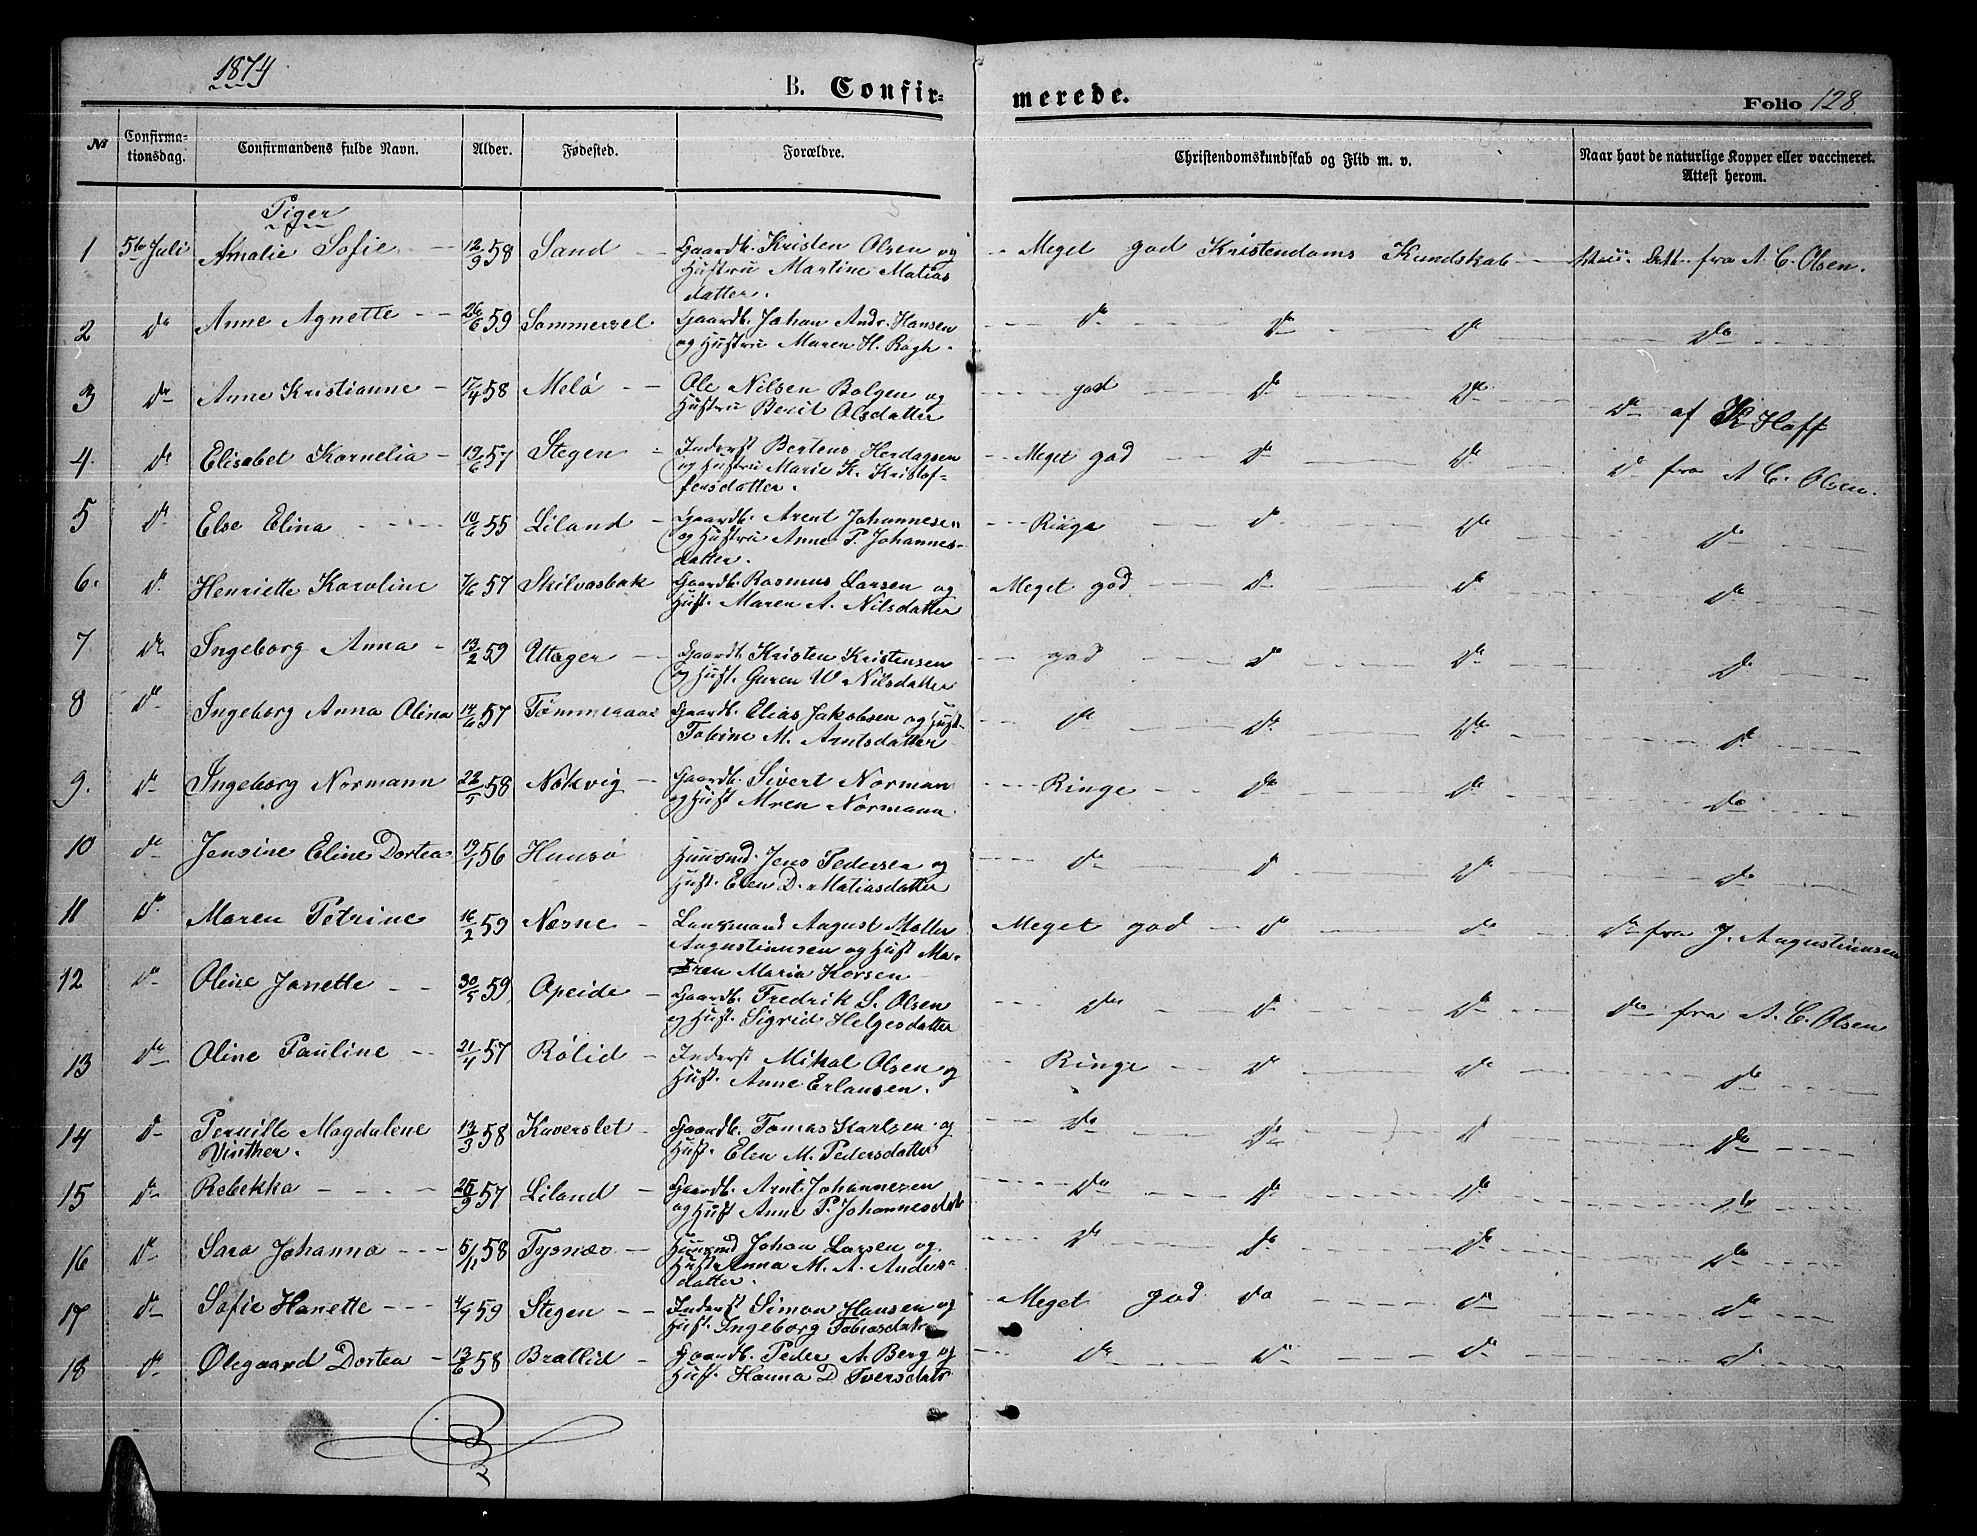 1874
B. Confirmerede.
Folio 128.
№ Confirmationsdag. Confirmandens fulde Navn. Alder. Fødested. Forældre. Christendomskundskab og Flid m. v. Naar havt de naturlige Kopper eller vaccineret. Attest herom.
Piger
1 5te Juli Amalie Sofie 12/9 58 Sand Gaardb. Kristen Olsen og Meget god Kristendoms Kundskab Att. fra A. C. Olsen.
Hustru Martine Matias
datter.
2 do Anne Agnette 26/6 59 Sommersel Gaardb. Johan Andr. Hansen do do do do
og Hustru Maren H. Ragh.
3 do Anne Kristianne 17/4 58 Melö Ole Nilsen Bolgen og god do do do af K Hoff
Hustru Berit Olsdatter
4. do Elisabet Kornelia 19/6 57 Stegen Inderst Bertens Herdagsen Meget god do do do fra A. C. Olsen.
og Hustru Marie K. Kristof-
fersdatter.
5 do Else Elina 10/6 55 Liland Gaardb. Arent Johannesen Ringe do do do
og Hustru Anne P. Johannes-
datter.
6. do Henriette Karoline 7/6 57 Skilvasbak Gaardb. Rasmus Larsen og Meget god do do do
Hust. Maren A. Nilsdatter
7. do Ingeborg Anna 13/2 59 Utager Gaardb. Kristen Kristensen god do do do
og Hust. Guren W Nilsdatter
8 do Ingeborg Anna Olina 14/6 57 Gaardb. Elias Jakobsen og Hust. do do do do
Tobine M. Arntsdatter
9. do Ingeborg Normann 22/5 58 Nökvig Gaardb. Sivert Norman Ringe do do do
og Hust Mren Normann
10 do Jensine Eline Dortea 19/1 56 Hunsö Huusmd Jens Pedersen og do do do do
Hust. Elen D. Matiasdatter
11 do Maren Petrine 16/2 59 Næsne Lensmand August Möller Meget god do do do fra J. Augustinusen
Augustinusen og Hust Ma-
ren Maria Korsen
12 do Oline Janette 30/5 59 Opeide Gaardb. Fredrik S. Olsen do do do do fra A. C. Olsen
og Hust. Sigrid Helgesdatter
13 do Oline Pauline 21/4 57 Rölid Inderst Mikal Olsen og Ringe do do do
Hust. Anne Erlansen.
14 do Pernille Magdalene 13/3 58 Kaverslet Gaardb. Tomas Karlsen og do do do do
Vinther. Hust. Elen M. Pedersdatter
15 do Rebekka 25/9 57 Liland Gaardb. Arnt Johannesen do do do do
og Hust Anne P. Johannesdatr
16 do Sara Johanna 5/11 58 Tysnæs Huusmd Johan Larsen og do do do do
Hustr Anna M. A. Anders-
datter.
17 do Sofie Hanette 4/7 59 Stegen Inderst Simon Hansen og Meget god do do do
Hust. Ingeborg Tobiasdatr
18 do Olegaard Dortea 13/6 58 Brallid Gaardb. Peder A. Berg og do do do do
Hust. Hanna D Iversdatr